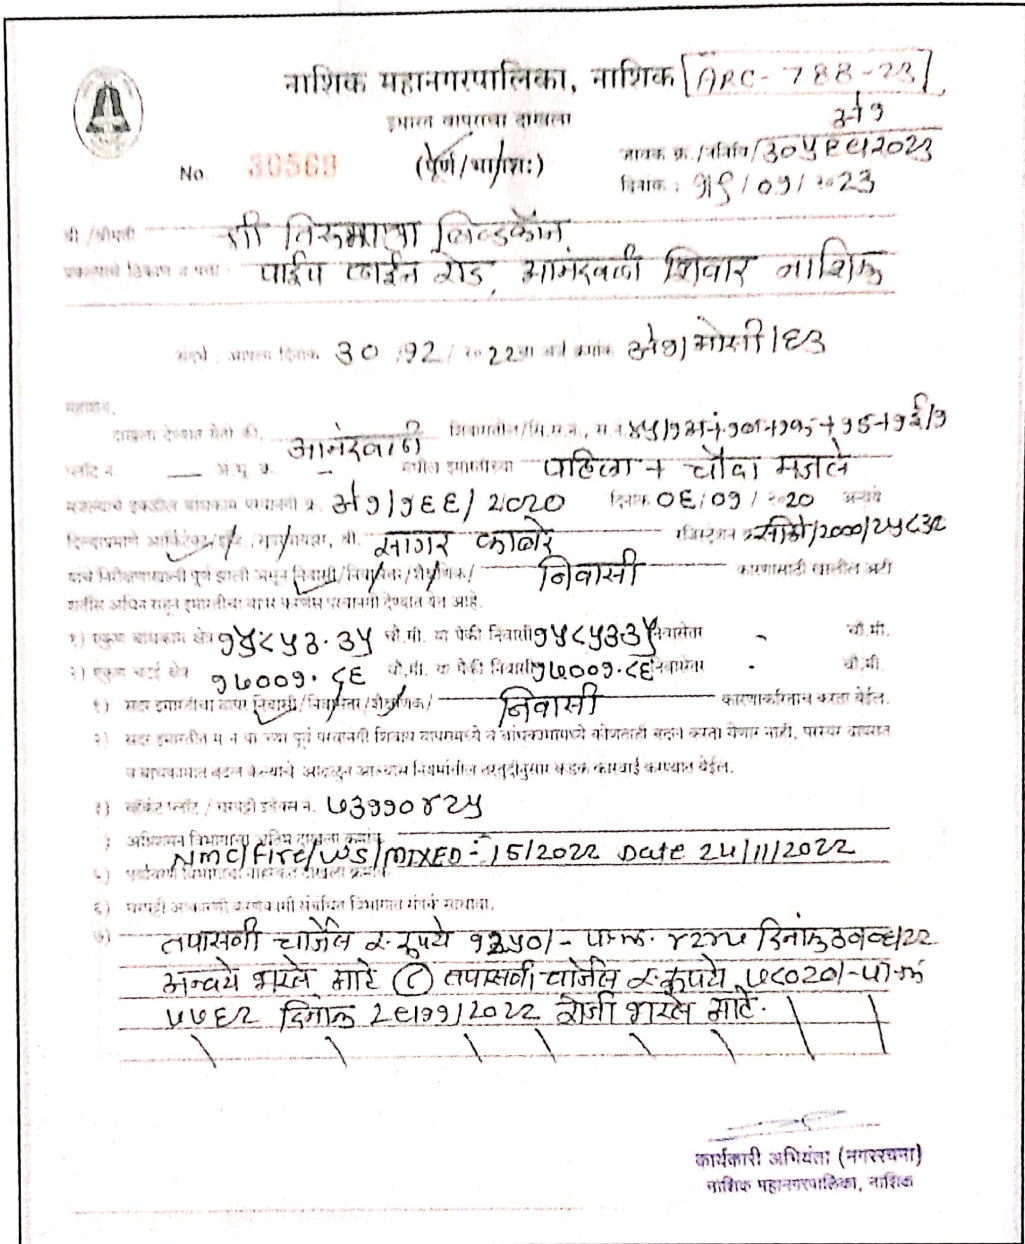 नाशिक महानगरपालिका, नाशिक [ARC-788-23]
इमारत वापराचा दाखला
अे१
No. 30569 (पूर्ण/भागशः)
जावक क्र./नरवि/३०५६९/2023
दिनांक : १९/०१/२०23
श्री /श्रीमती श्री तिरुमाला बिल्डकॉन,
पाईप लाईन रोड, आनंदवली शिवार नाशिक
संदर्भ : आपला दिनांक 30/१2/२०22चा अर्ज क्रमांक अे१/ओसी/६३
महाशय,
दाखला देण्यात येतो की, आनंदवली शिवारातील/सि.स.नं., स.नं.
प्लॉट नं. — अं.भू.क्र. – मधील इमारतीच्या पहिला + चौदा मजले
मजल्याचे इकडील बांधकाम परवानगी क्र. अे१/१६६/2020 दिनांक ०६/०१/२०20 अन्वये
दिल्याप्रमाणे आर्किटेक्ट/इंजि./सुपरवायझर, श्री. सागर काबरे रजिस्ट्रेशन क्र.
यांचे निरीक्षणाखाली पूर्ण झाली असून निवासी/निवासेतर/शैक्षणिक/ निवासी कारणासाठी खालील अटी
शर्तीस अधिन राहून इमारतीचा वापर करणेस परवानगी देण्यात येत आहे.
१) एकूण बांधकाम क्षेत्र १५८५३.३५ चौ.मी. या पैकी निवासी १५८५३.३५ निवासेतर - चौ.मी.
२) एकूण चटई क्षेत्र १७००१.८६ चौ.मी. या पैकी निवासी १७००१.८६ निवासेतर - चौ.मी.
१) सदर इमारतीचा वापर निवासी/निवासेतर/शैक्षणिक/ निवासी कारणाकरिताच करता येईल.
२) सदर इमारतीत म न पा च्या पूर्व परवानगी शिवाय वापरामध्ये व बांधकामामध्ये कोणताही बदल करता येणार नाही, परस्पर वापरात
व बांधकामात बदल केल्याचे आढळून आल्यास नियमांतील तरतुदीनुसार कडक कारवाई करण्यात येईल.
३) व्हॅकंट प्लॉट / घरपट्टी इंडेक्स नं. ७३११०४२५
) अग्निशमन विभागाचा अंतिम दाखला क्रमांक
NMC/Fire/WS/MIXED-15/2022 Date 24/11/2022
५) पर्यावरण विभागाचा नाहरकत दाखला क्रमांक
६) घरपट्टी आकारणी करणेकामी संबंधित विभागात संपर्क साधावा.
७) तपासणी चार्जेस र. रुपये पा.क्र. ४२४५ दिनांक
अन्वये भरले आहे (८) तपासणी चार्जेस र. रुपये ५८०20/- पा.क्र
५७६2 दिनांक 2९/११/2022 रोजी भरले आहे.
कार्यकारी अभियंता (नगररचना)
नाशिक महानगरपालिका, नाशिक